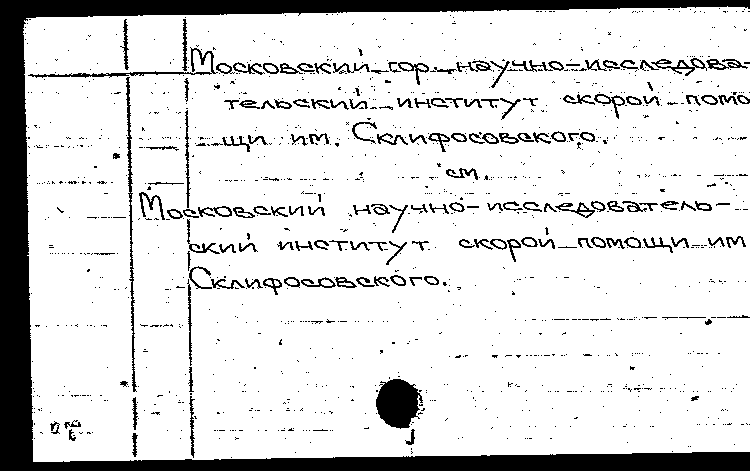 Московский гор. научно-исследова-
тельский институт скорой помо
щи им. Склифосовского.
см.
Московский научно-исследователь-
ский институт скорой помощи им
Склифосовского.